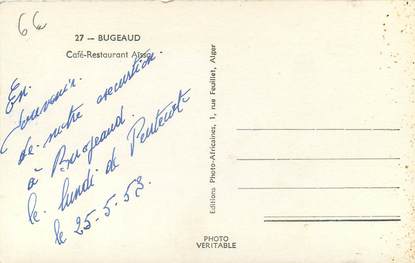 6
27 — BUGEAUD
Café-Restaurant Aïssa
En
souvenir
de notre excursion
à Bugeaud
le lundi de Pentecôte
le 25-5-53.
Editions Photo-Africaines, 1, rue Feuillet, Alger
PHOTO
VERITABLE